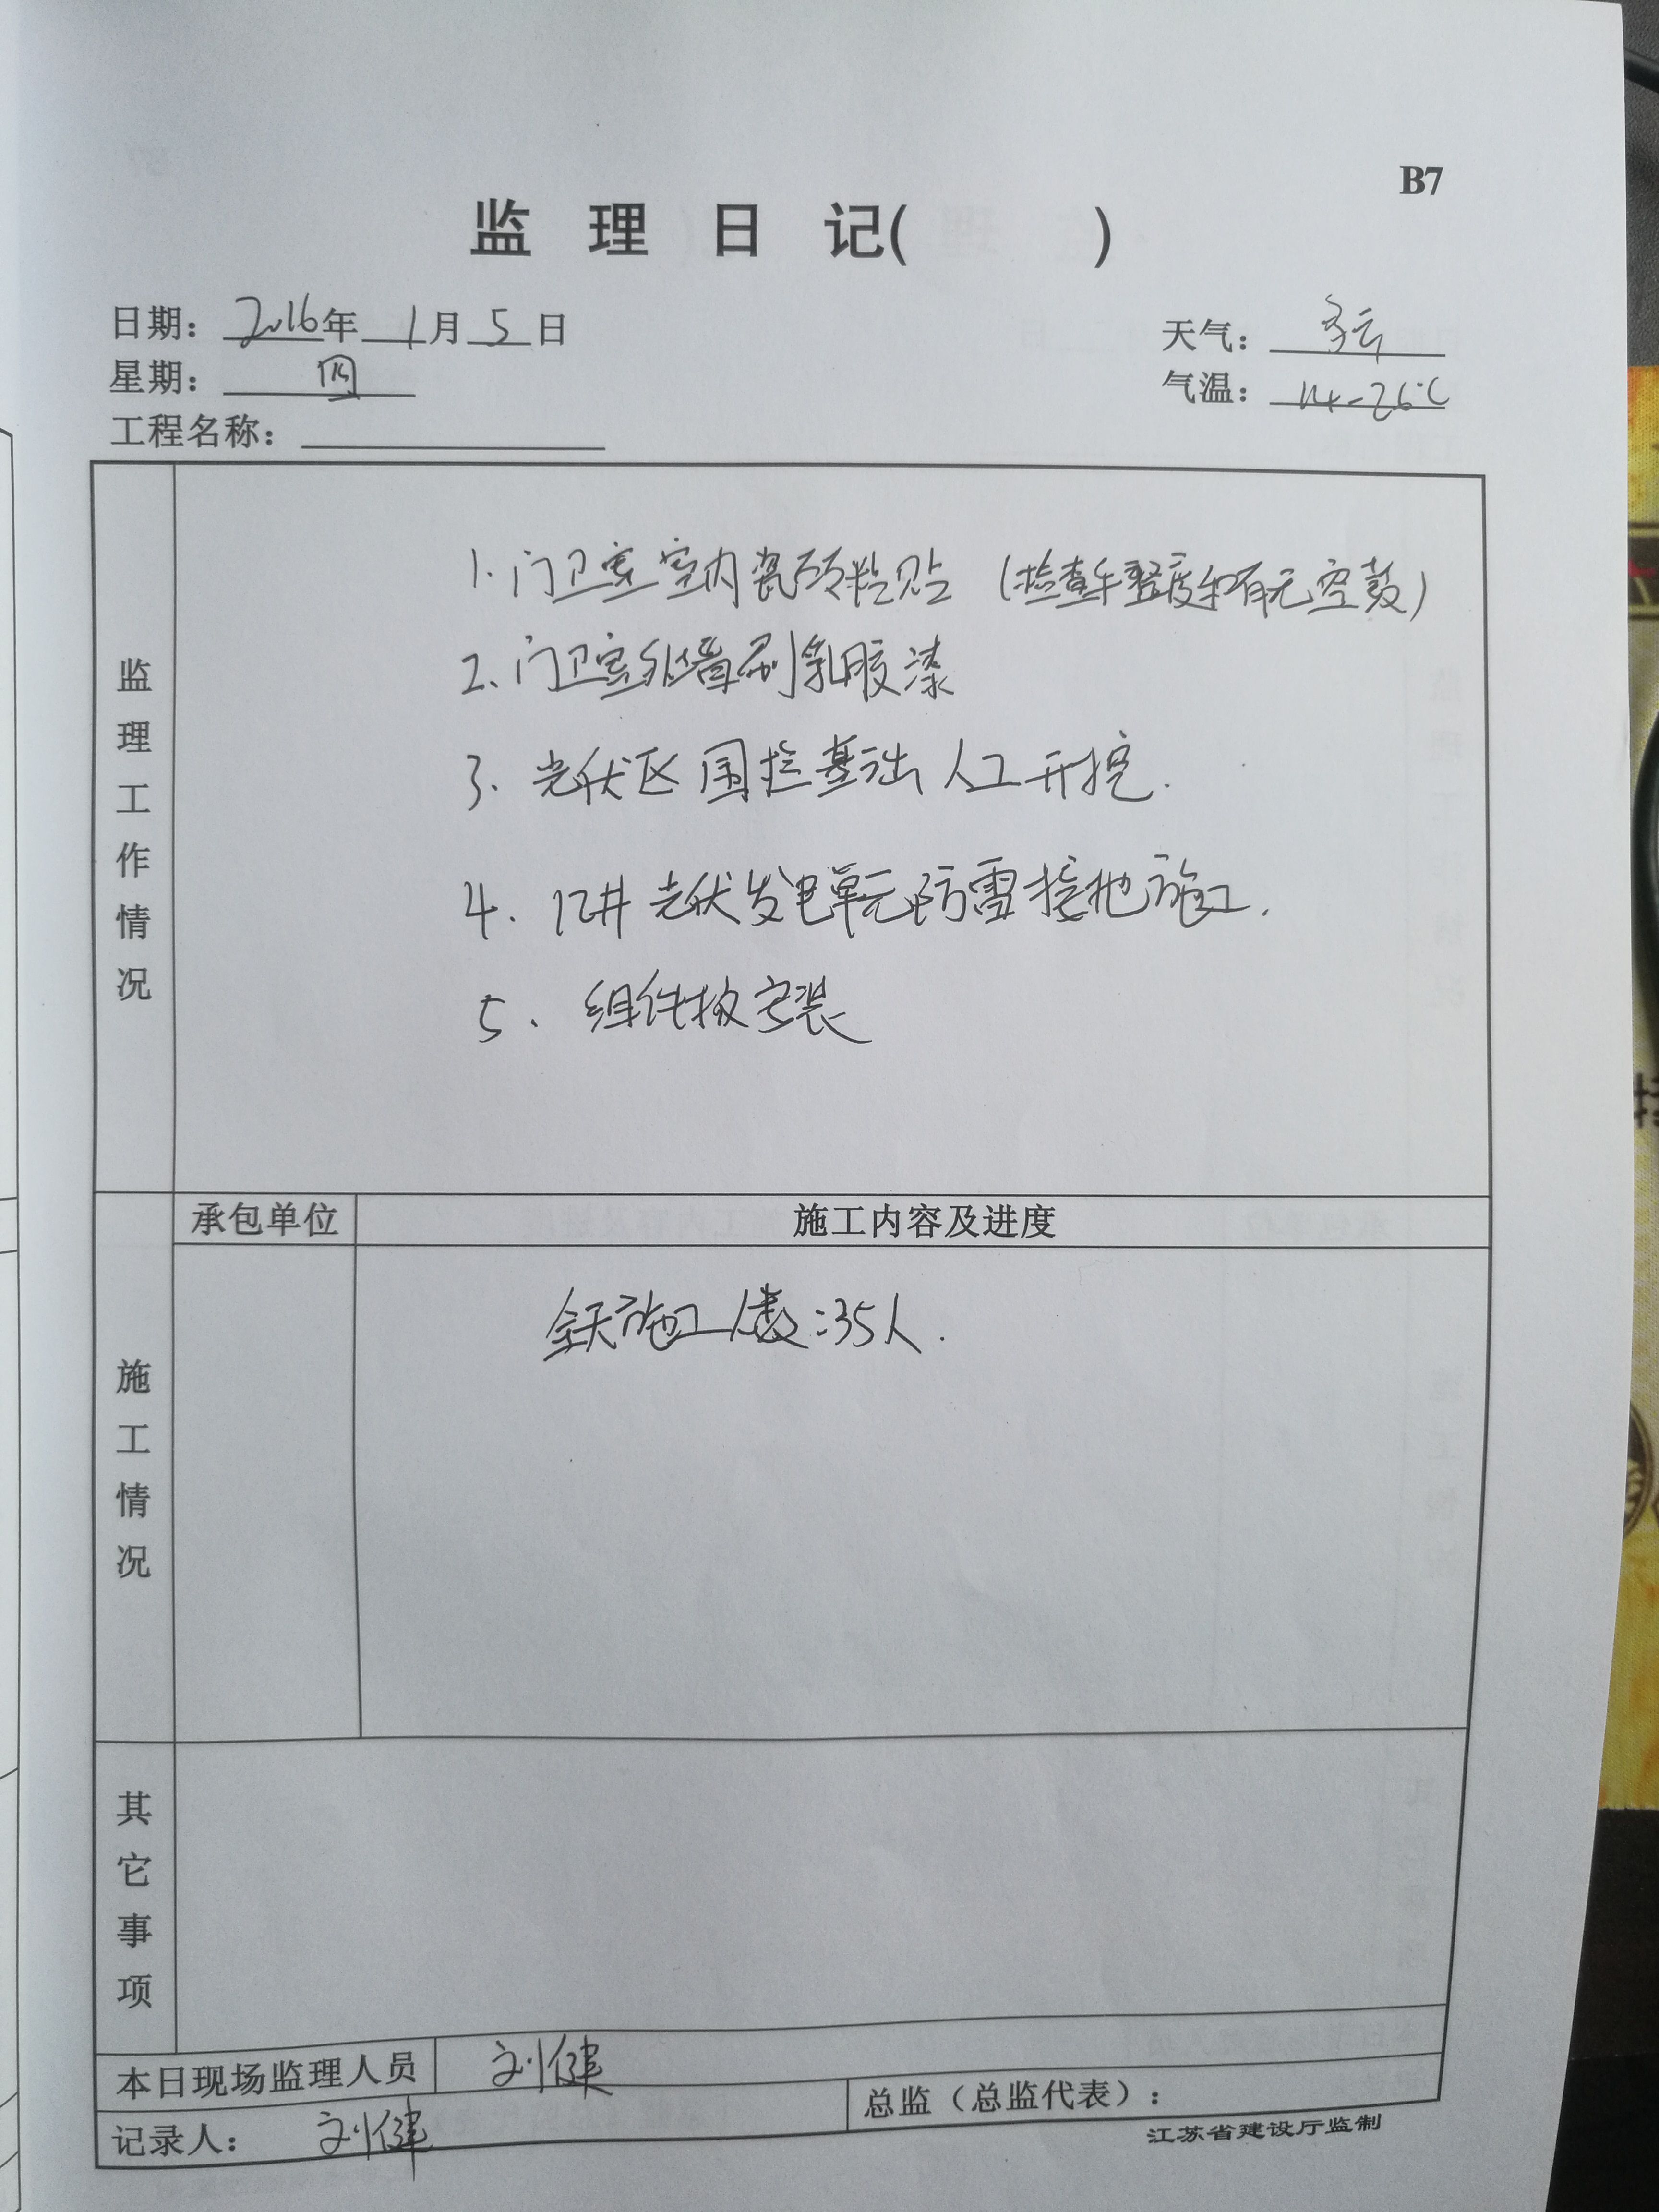 B7
监 理 日 记( )
日期: 2016年 1月 5日
天气: 多云
星期: 四
气温: 14-26℃
工程名称:
监理工作情况
1.门卫室室内瓷砖粘贴 (检查平整度和有无空鼓)
2.门卫室外墙刷乳胶漆
3.光伏区围拦基础人工开挖.
4. 12#光伏发电单元防雷接地施工.
5. 组件板安装
承包单位 施工内容及进度
施工情况
全天施工人数:35人.
其它事项
本日现场监理人员 刘健
记录人: 刘健
总监（总监代表）:
江苏省建设厅监制